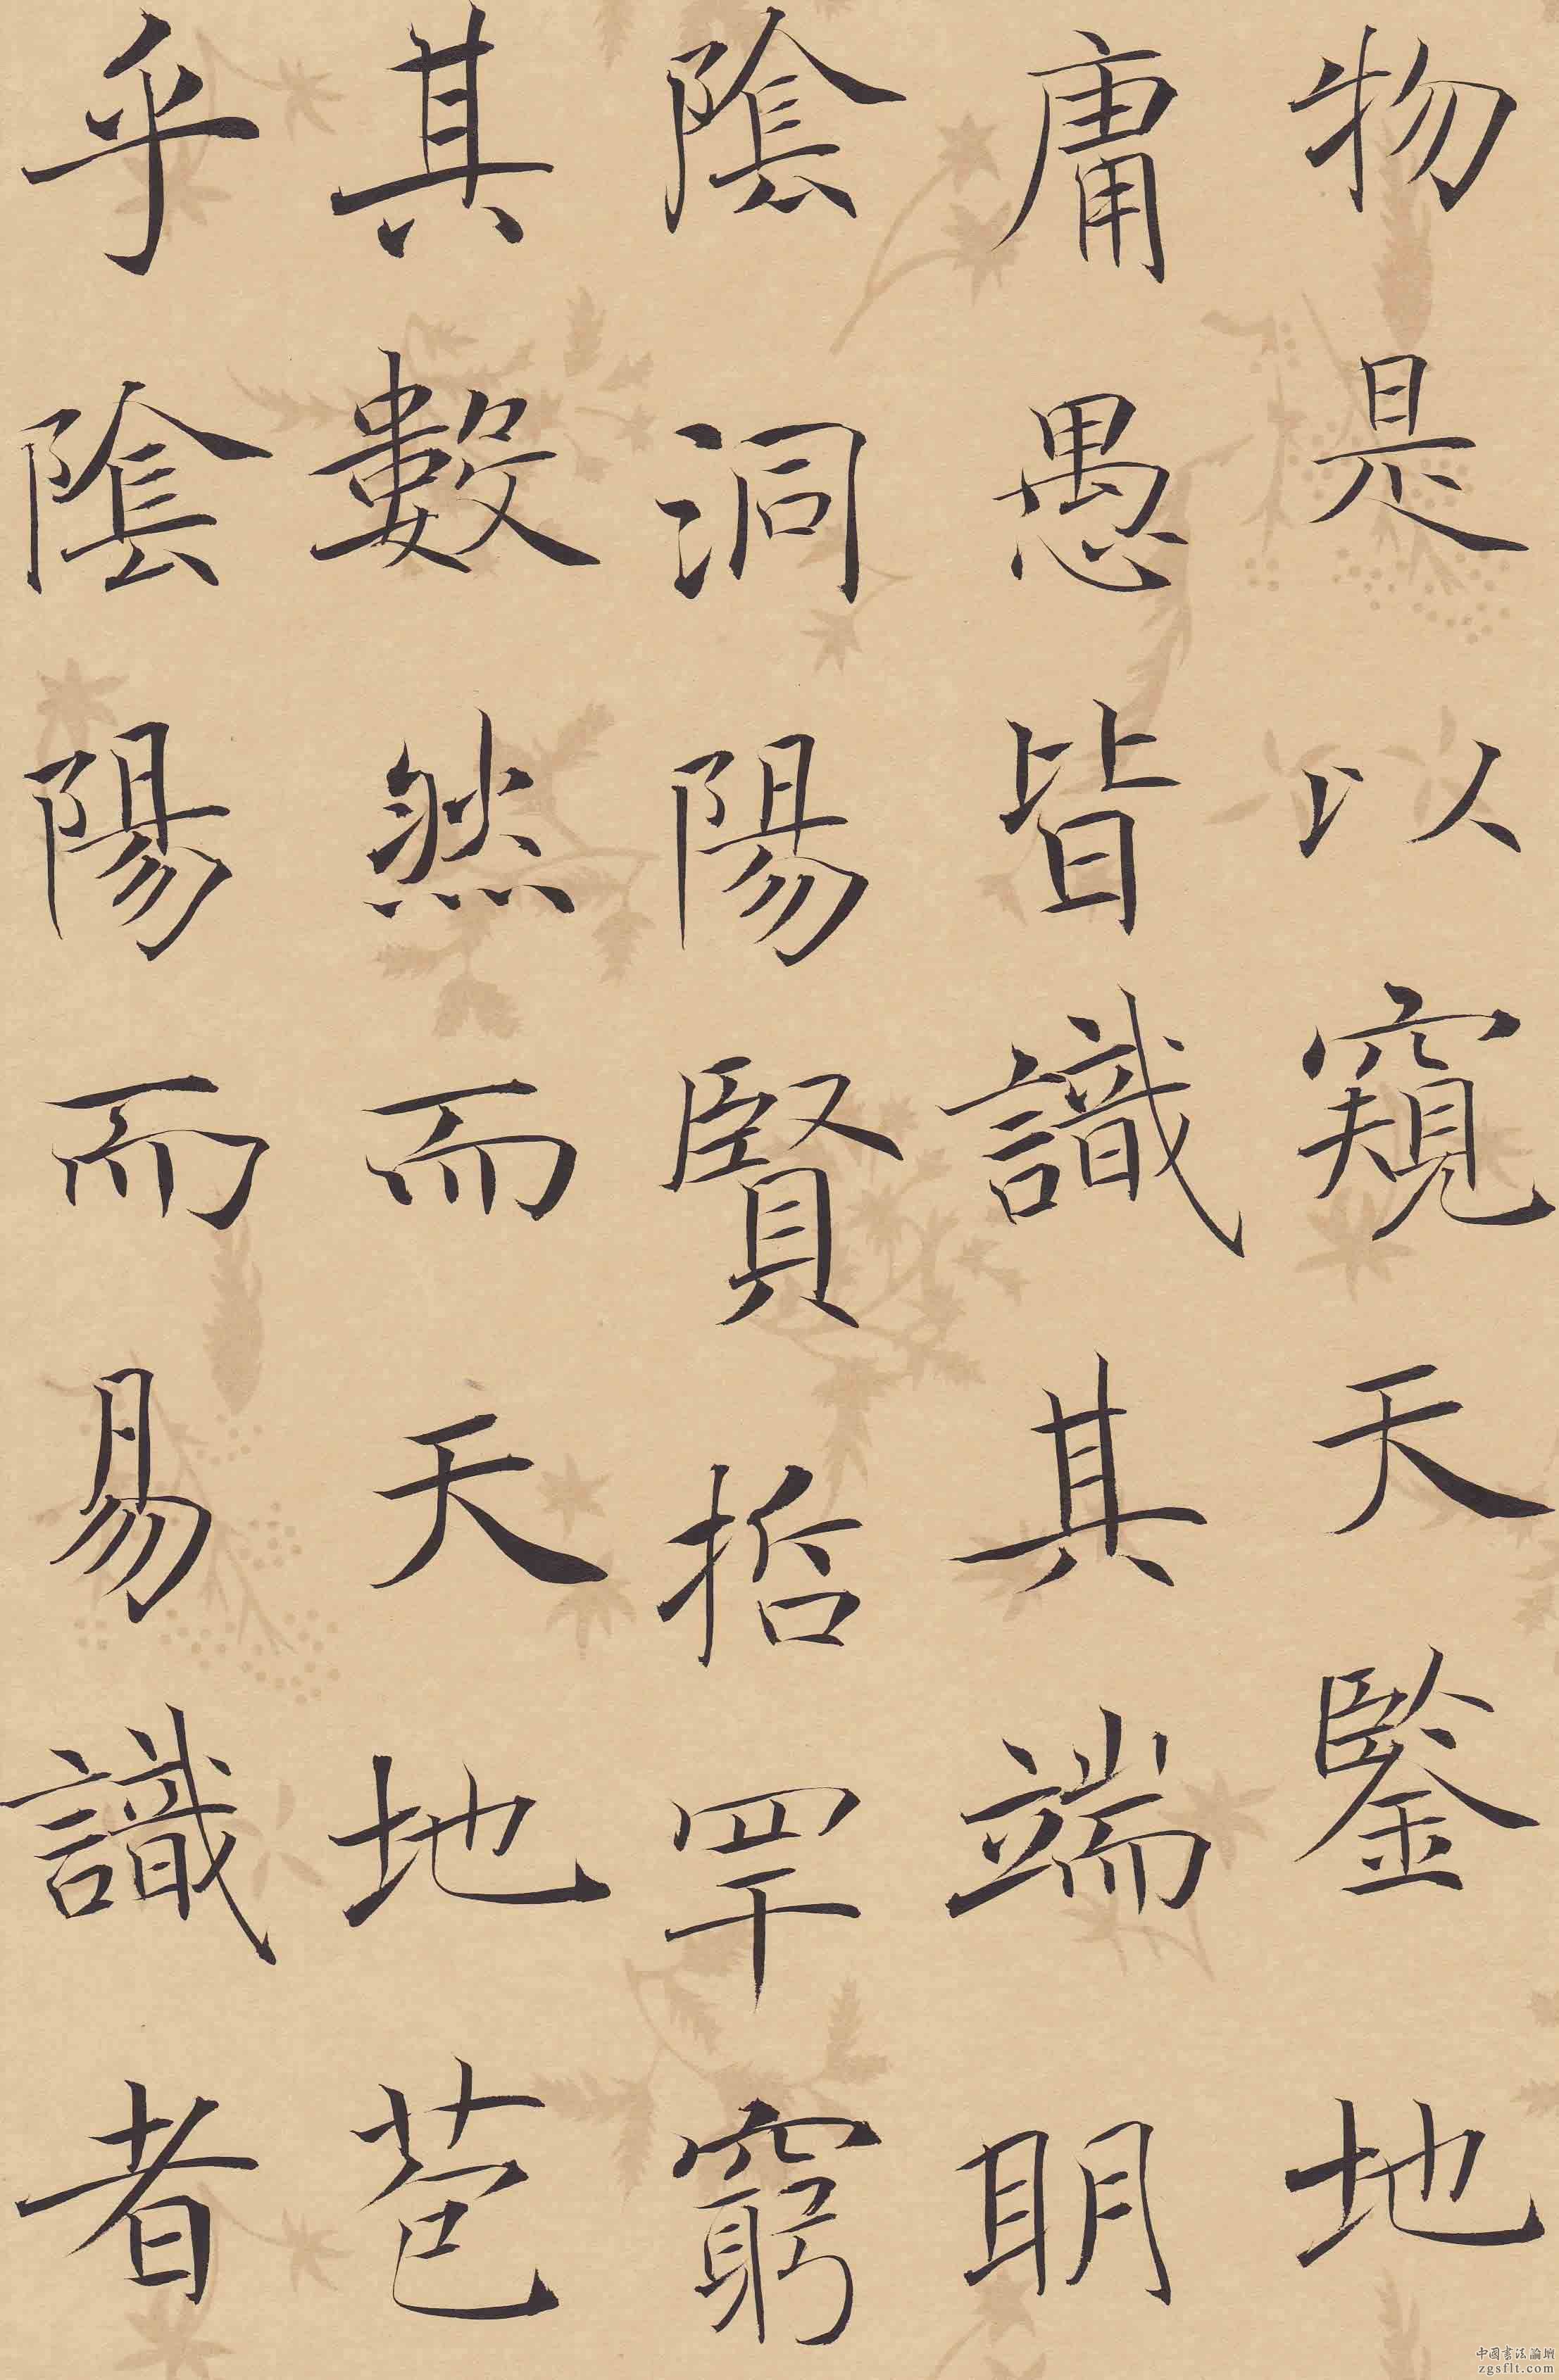 物是以窺天鑒地
庸愚皆識其端明
陰洞陽賢哲罕窮
其數然而天地苞
乎陰陽而易識者
中國書法論壇
zgsflt.com